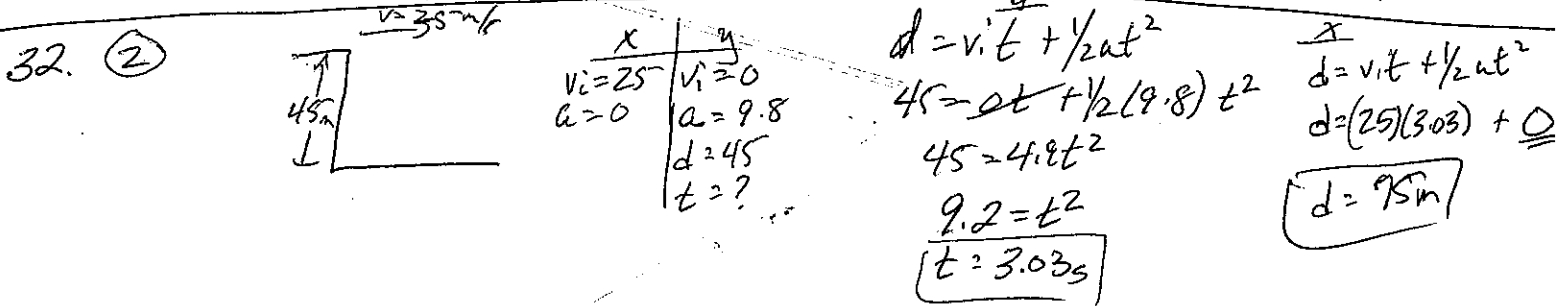 32. ②
v = 35 m/s
45m
x | y
vi = 25 | vi = 0
a = 0 | a = 9.8
d = 45
t = ?
y
d = vit + 1/2at²
45 = 0t + 1/2(9.8)t²
45 = 4.9t²
9.2 = t²
t = 3.03s
x
d = vit + 1/2at²
d = (25)(3.03) + 0
d = 75m